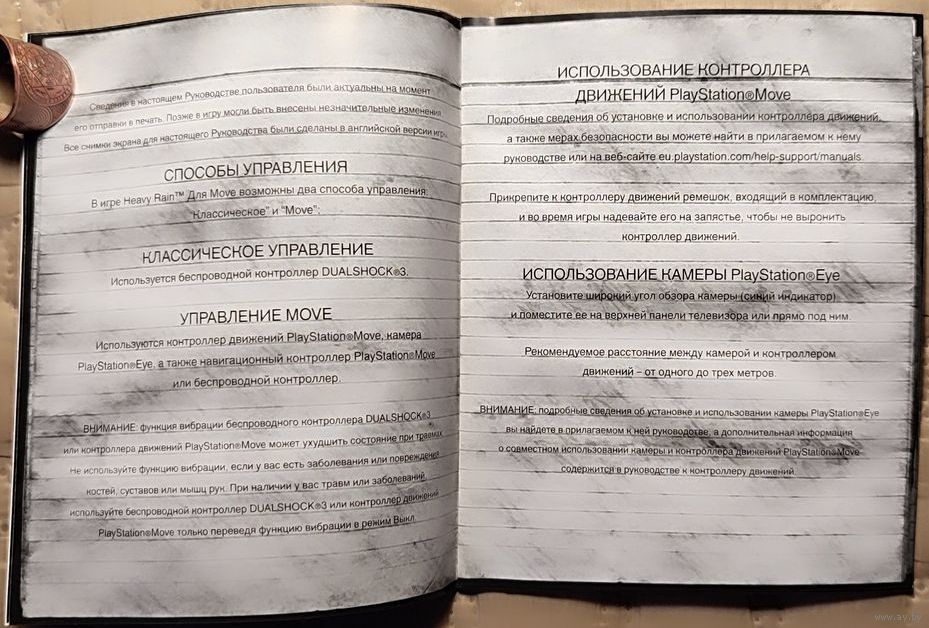 Сведения в настоящем Руководстве пользователя были актуальны на момент
его отправки в печать. Позже в игру могли быть внесены незначительные изменения.
Все снимки экрана для настоящего Руководства были сделаны в английской версии игры.
СПОСОБЫ УПРАВЛЕНИЯ
В игре Heavy Rain™ Для Move возможны два способа управления:
"Классическое" и "Move":
КЛАССИЧЕСКОЕ УПРАВЛЕНИЕ
Используется беспроводной контроллер DUALSHOCK®3.
УПРАВЛЕНИЕ MOVE
Используются контроллер движений PlayStation®Move, камера
PlayStation®Eye, а также навигационный контроллер PlayStation®Move
или беспроводной контроллер.
ВНИМАНИЕ: функция вибрации беспроводного контроллера DUALSHOCK®3
или контроллера движений PlayStation®Move может ухудшить состояние при травмах.
Не используйте функцию вибрации, если у вас есть заболевания или повреждения
костей, суставов или мышц рук. При наличии у вас травм или заболеваний
используйте беспроводной контроллер DUALSHOCK®3 или контроллер движений
PlayStation®Move только переведя функцию вибрации в режим Выкл.
ИСПОЛЬЗОВАНИЕ КОНТРОЛЛЕРА
ДВИЖЕНИЙ PlayStation®Move
Подробные сведения об установке и использовании контроллера движений,
а также мерах безопасности вы можете найти в прилагаемом к нему
руководстве или на веб-сайте eu.playstation.com/help-support/manuals.
Прикрепите к контроллеру движений ремешок, входящий в комплектацию,
и во время игры надевайте его на запястье, чтобы не выронить
контроллер движений.
ИСПОЛЬЗОВАНИЕ КАМЕРЫ PlayStation®Eye
Установите широкий угол обзора камеры (синий индикатор)
и поместите ее на верхней панели телевизора или прямо под ним.
Рекомендуемое расстояние между камерой и контроллером
движений – от одного до трех метров.
ВНИМАНИЕ: подробные сведения об установке и использовании камеры PlayStation®Eye
вы найдете в прилагаемом к ней руководстве, а дополнительная информация
о совместном использовании камеры и контроллера движений PlayStation®Move
содержится в руководстве к контроллеру движений.
www.ay.by